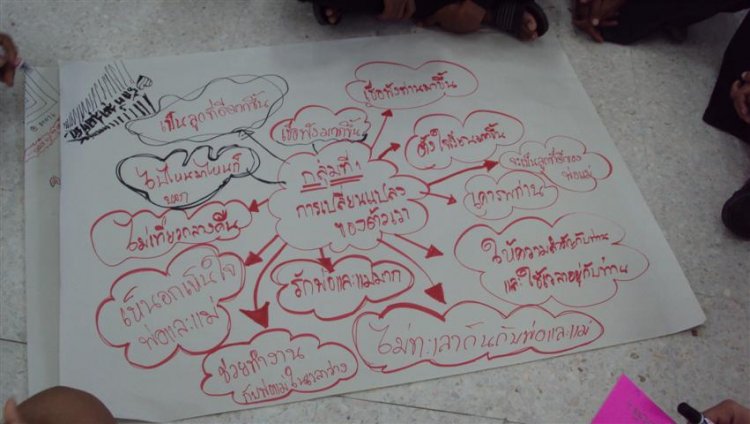 เป็นลูกที่ดีมากขึ้น
เชื่อฟังมากขึ้น
เชื่อฟังท่านมากขึ้น
ตั้งใจเรียนมากขึ้น
จะเป็นลูกที่ดีของ
พ่อแม่
เคารพท่าน
ไปไหนมาไหนก็
บอก
กลุ่มที่ 1
การเปลี่ยนแปลง
ของตัวเรา
ไม่เที่ยวกลางคืน
ให้ความสำคัญกับท่าน
และใช้เวลาอยู่กับท่าน
เห็นอกเห็นใจ
พ่อและแม่
รักพ่อและแม่มาก
ไม่ทะเลาะกันกับพ่อและแม่
ช่วยทำงาน
กับพ่อแม่ในเวลาว่าง